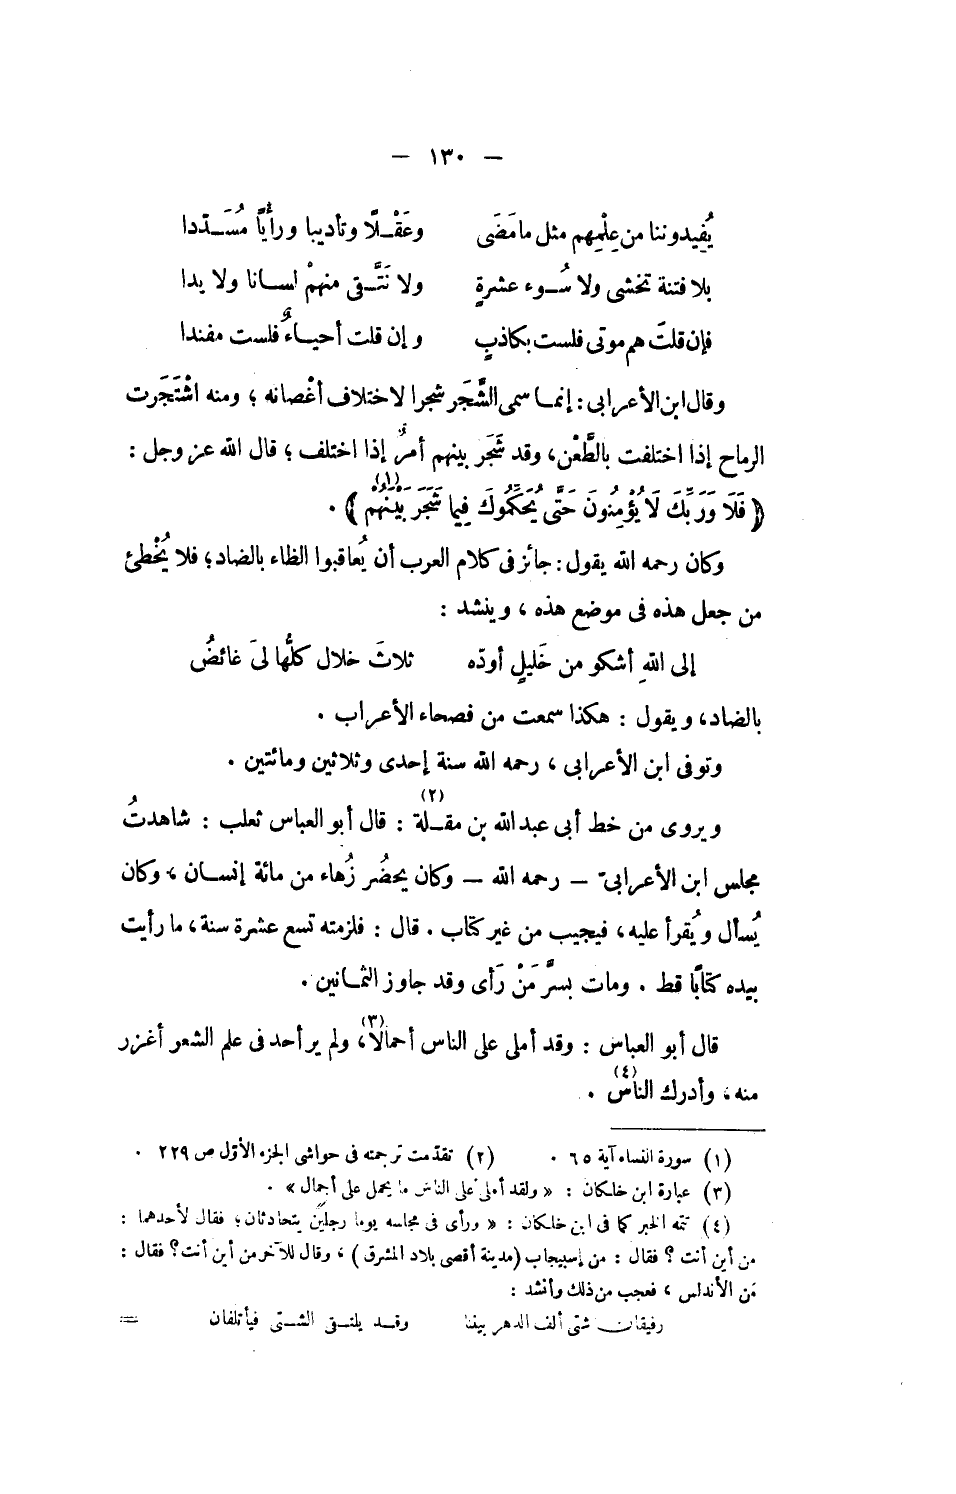 — ١٣٠ —
يُفِيدوننا من عِلْمِهم مثل ما مَضَى    وعَقْـلًا وتأديبا ورأيًا مُسَـدّدا
بلا فتنة تخشى ولا سُـوء عشرةٍ    ولا نَتَّـقى منهمْ لسـانا ولا يدا
فإن قلتَ هم موتى فلست بكاذبٍ    وإن قلت أحيـاءٌ فلست مفندا
وقال ابن الأعرابى : إنمـا سمى الشَّجَر شجرا لاختلاف أغْصانه ؛ ومنه اشْتَجَرت
الرماح إذا اختلفت بالطَّعْن، وقد شَجَر بينهم أمرٌ إذا اختلف ؛ قال الله عز وجل :
﴿ فَلَا وَرَبِّكَ لَا يُؤْمِنُونَ حَتَّى يُحَكِّمُوكَ فِيمَا شَجَرَ بَيْنَهُمْ ﴾(١) .
وكان رحمه الله يقول : جائز فى كلام العرب أن يُعاقبوا الظاء بالضاد؛ فلا يُخْطئ
من جعل هذه فى موضع هذه ، وينشد :
إلى اللهِ أشكو من خَليلٍ أودّه    ثلاثَ خلال كلُّها لىَ غائضُ
بالضاد، ويقول : هكذا سمعت من فصحاء الأعراب .
وتوفى ابن الأعرابى ، رحمه الله سنة إحدى وثلاثين ومائتين .
ويروى من خط أبى عبد الله بن مقـلة(٢) : قال أبو العباس ثعلب : شاهدتُ
مجلس ابن الأعرابىّ — رحمه الله — وكان يحضُر زُهاء من مائة إنسـان ، وكان
يُسأل ويُقرأ عليه، فيجيب من غير كتاب . قال : فلزمته تسع عشرة سنة، ما رأيت
بيده كتابًا قط . ومات بسرَّ مَنْ رَأى وقد جاوز الثمـانين .
قال أبو العباس : وقد أملى على الناس أحمالا(٣)، ولم ير أحد فى علم الشعر أغزر
منه ، وأدرك الناس(٤) .
(١) سورة النساء آية ٦٥ .    (٢) تقدّمت ترجمته فى حواشى الجزء الأوّل ص ٢٢٩ .
(٣) عبارة ابن خلكان : « ولقد أملى على الناس ما يحمل على أجمال » .
(٤) تتمة الخبر كما فى ابن خلكان : « ورأى فى مجلسه يوما رجلين يتحادثان؛ فقال لأحدهما :
من أين أنت ؟ فقال : من إسبيجاب (مدينة أقصى بلاد المشرق) ، وقال للآخر من أين أنت؟ فقال :
من الأندلس ، فعجب من ذلك وأنشد :
رفيقان شتى ألف الدهر بيننا    وقـد يلتـقى الشـتى فيأتلفان    =